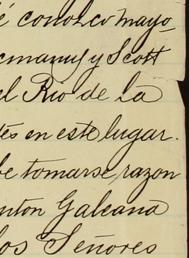 é conozco mayo-
y Scott
el Rio de la
tes en este lugar.
be tomarse razon
anton Galeana
los Señores